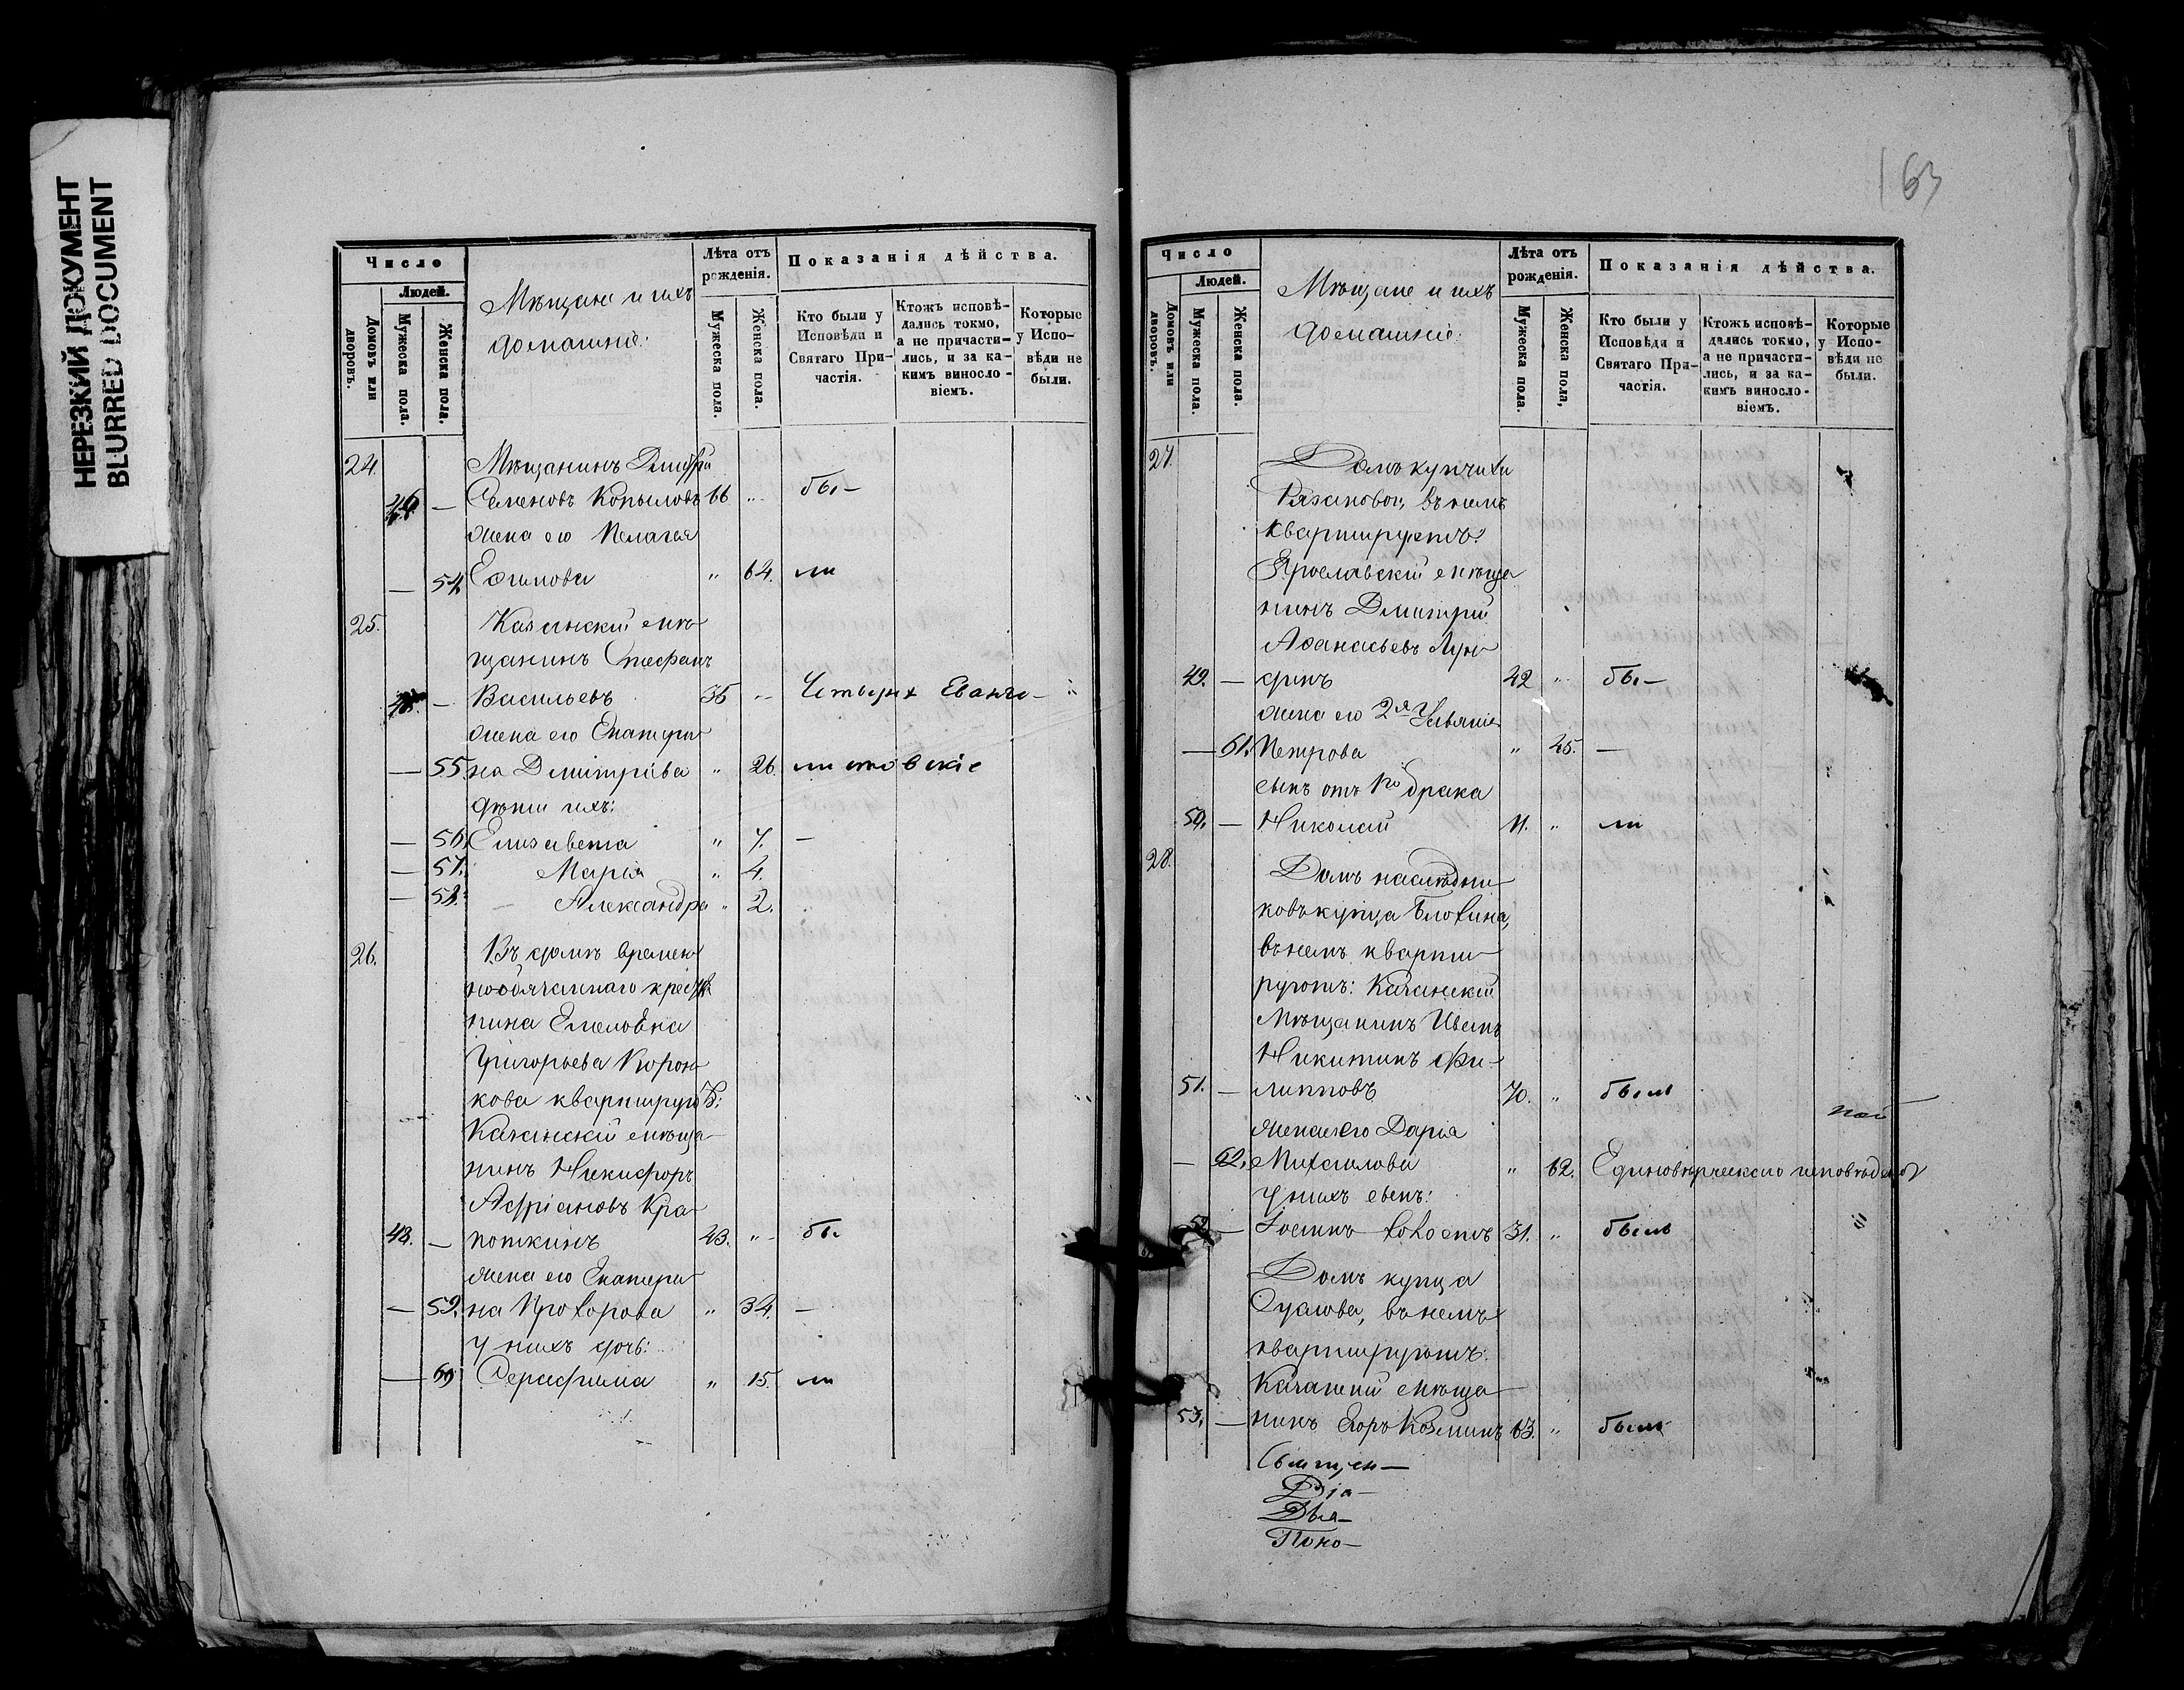 НЕРЕЗКИЙ ДОКУМЕНТ
BLURRED DOCUMENT
Число
Людей.
Домовъ или дворовъ.
Мужеска пола.
Женска пола.
Мѣщане и ихъ
домашніе:
Лѣта отъ рожденія.
Мужеска пола.
Женска пола.
Показанія дѣйства.
Кто были у Исповѣди и Святаго Причастія.
Ктожъ исповѣ-
дались токмо,
а не причасти-
лись, и за ка-
кимъ винослo-
віемъ.
Которые
у Испо-
вѣди не
были.
24. Мѣщанинъ Дмитрій
46. — Семеновъ Копыловъ 66 " бы-
жена его Пелагея
— 54. Ефимова " 64. ли
25. Казанскій мѣ-
щанинъ Стефанъ
— Васильевъ 35 "
жена его Екатери-
— 55. на Дмитріева " 26.
дѣти ихъ:
— 56. Елизавета " 7. —
— 57. Марія " 4.
— 58. Александра " 2.
26. Въ домѣ времен-
нообязаннаго крестья
нина
Григорьева
кова квартируютъ:
Казанскій мѣща-
нинъ Никифоръ
Адріановъ Кра-
48. — поткинъ 43. " бы-
жена его Екатери-
— 59. на Прохорова " 34. —
у нихъ дочь:
— 60 Серафима " 15. ли
163
Число
Людей.
Домовъ или дворовъ.
Мужеска пола.
Женска пола.
Мѣщане и ихъ
домашніе:
Лѣта отъ рожденія.
Мужеска пола.
Женска пола,
Показанія дѣйства.
Кто были у Исповѣди и Святаго Причастія.
Ктожъ исповѣ-
дались токмо,
а не причасти-
лись, и за ка-
кимъ винослo-
віемъ.
Которые
у Испо-
вѣди не
были.
27. Домъ купчихи
Рязановой, въ немъ
квартируетъ:
Ярославскій мѣща
нинъ Дмитрій
Афанасьевъ
49. — 42 " бы-
жена его 2я Ульянія
— 61. Петрова " 45. —
сынъ отъ 1го брака
50. — Николай 11. " ли
28. Домъ наслѣдни-
ковъ купца Блохина,
въ немъ кварти-
руютъ: Казанскій
Мѣщанинъ Иванъ
Никитинъ Фи-
51. — липповъ 70. " былъ
жена его Дарія
— 62. Михаилова " 62. Единовѣрческаго исповѣданія
у нихъ сынъ:
52. — Іоаннъ холостъ 31. " былъ
Домъ купца
въ немъ
квартируютъ:
Казанскій мѣща-
53. — нинъ Егоръ Козминъ 63. " былъ
Священ—
Діа—
Дья—
Поно—